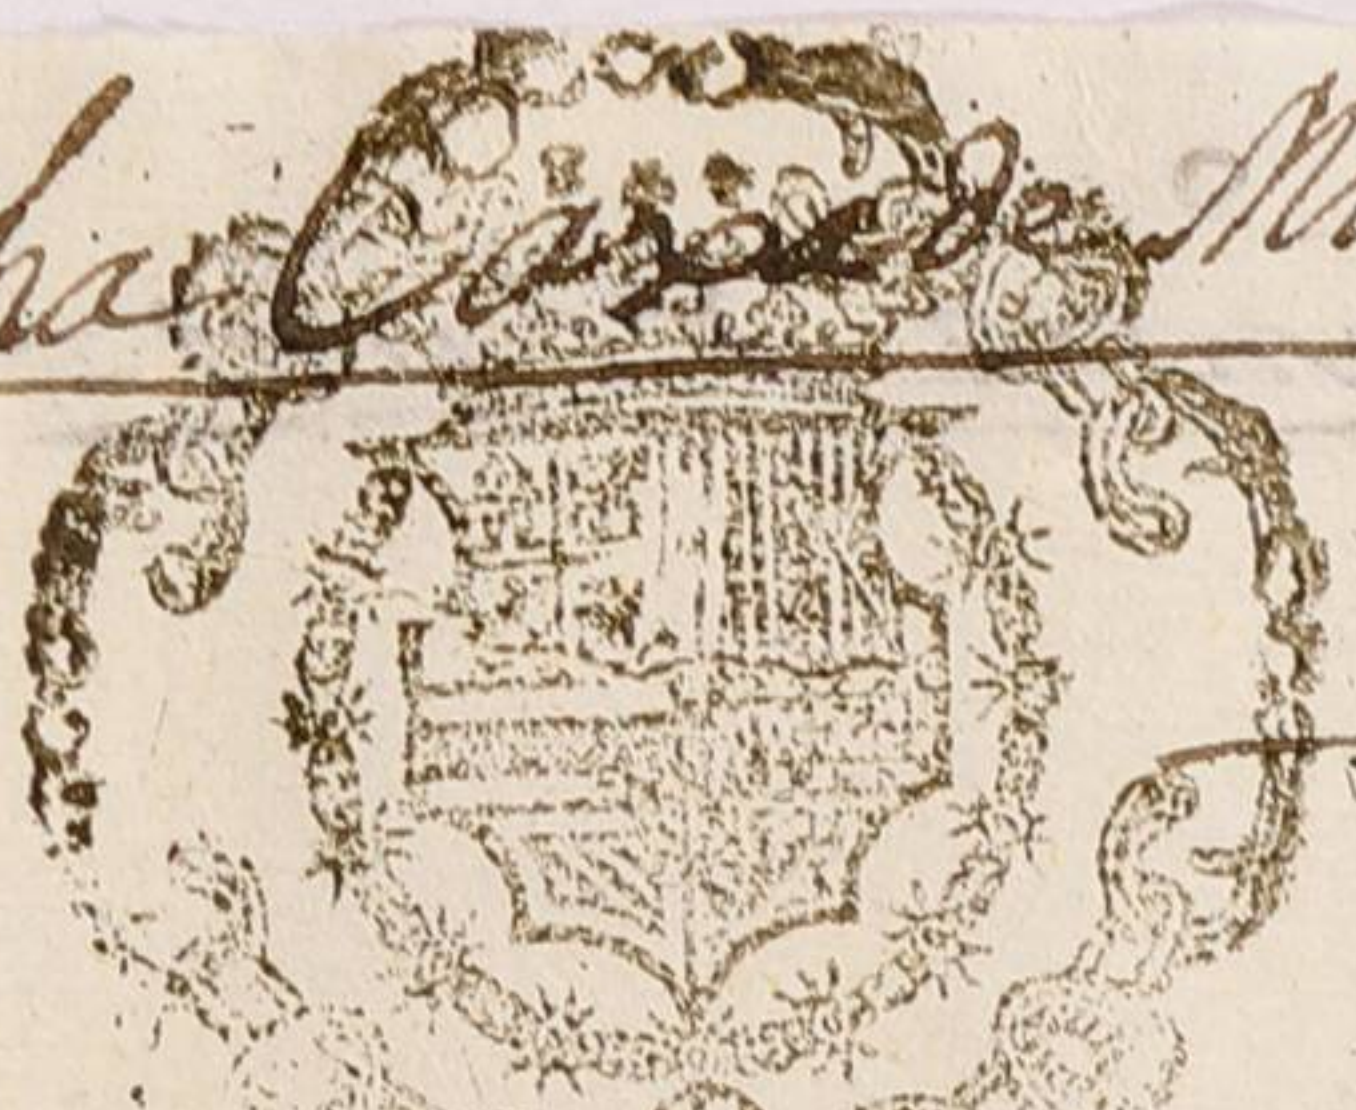 ha Casa de M